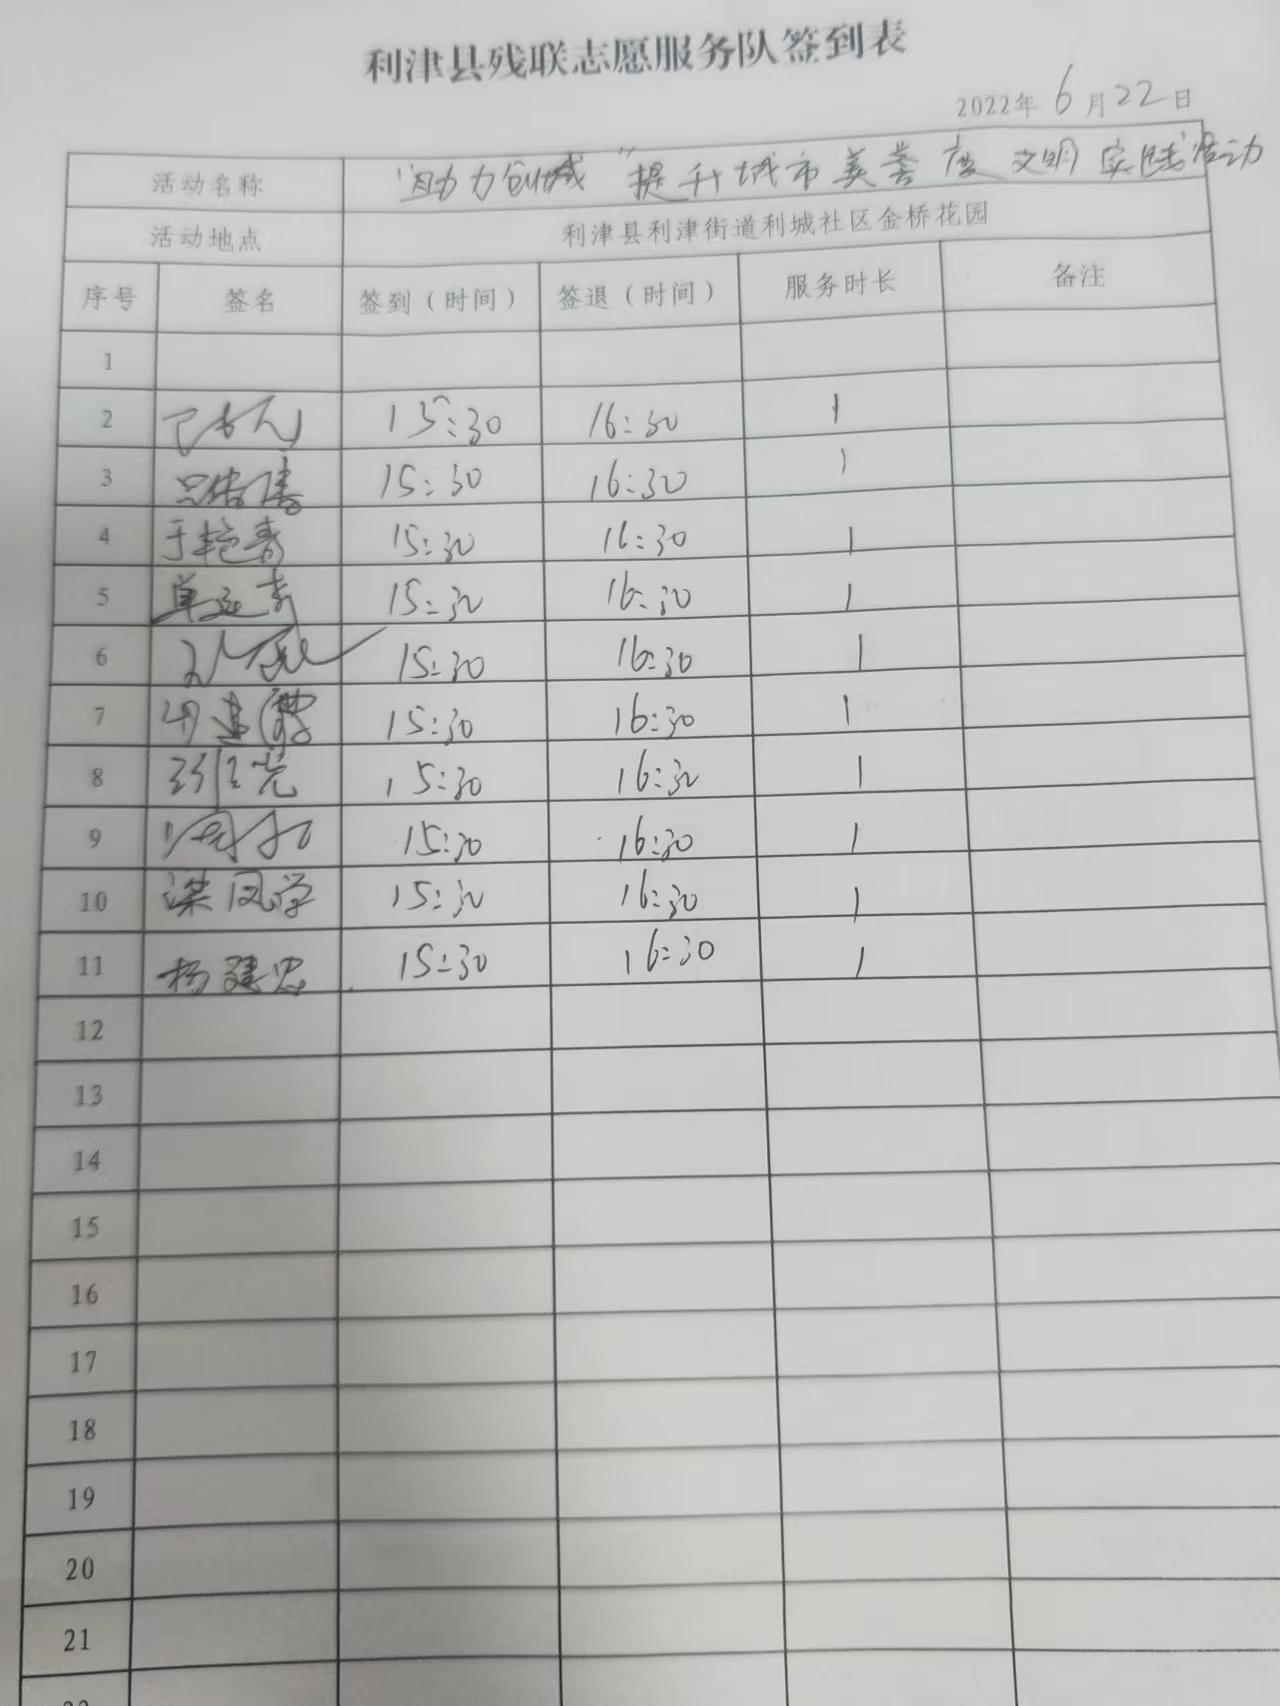 利津县残联志愿服务队签到表
2022年 6月22日
活动名称 "助力创城"提升城市美誉度 文明实践活动
活动地点 利津县利津街道利城社区金桥花园
序号 签名 签到（时间） 签退（时间） 服务时长 备注
1
2 15:30 16:30 1
3 15:30 16:30 1
4 于艳青 15:30 16:30 1
5 15:30 16:30 1
6 15:30 16:30 1
7 15:30 16:30 1
8 15:30 16:30 1
9 15:30 16:30 1
10 梁凤学 15:30 16:30 1
11 杨建忠 15:30 16:30 1
12
13
14
15
16
17
18
19
20
21